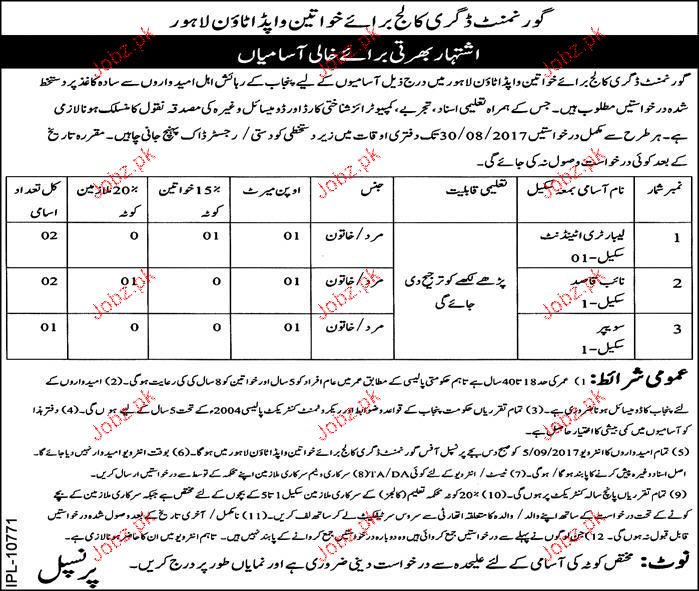 گورنمنٹ ڈگری کالج برائے خواتین واپڈا ٹاؤن لاہور
اشتہار بھرتی برائے خالی آسامیاں
گورنمنٹ ڈگری کالج برائے خواتین واپڈا ٹاؤن لاہور میں درج ذیل آسامیوں کے لیے پنجاب کے رہائشی اہل امیدواروں سے سادہ کاغذ پر دستخط
شدہ درخواستیں مطلوب ہیں۔ جس کے ہمراہ تعلیمی اسناد، تجربے، کمپیوٹرائز شناختی کارڈ اور ڈومیسائل وغیرہ کی مصدقہ نقول کا منسلک ہونا لازمی
ہے۔ ہر طرح سے مکمل درخواستیں 30/08/2017 تک دفتری اوقات میں زیر دستخطی کو دستی / رجسٹرڈ ڈاک پہنچ جانی چاہیں۔ مقررہ تاریخ
کے بعد کوئی درخواست وصول نہ کی جائے گی۔
نمبر شمار نام آسامی بمعہ سکیل تعلیمی قابلیت جنس اوپن میرٹ 15% خواتین کوٹہ 20% ملازمین کوٹہ کل تعداد آسامی
1 لیبارٹری اٹینڈنٹ سکیل-01 پڑھے لکھے کو ترجیح دی جائے گی مرد/خاتون 01 01 0 02
2 نائب قاصد سکیل-1 مرد/خاتون 01 0 01 02
3 سویپر سکیل-1 مرد/خاتون 01 0 0 01
عمومی شرائط: (1) عمر کی حد 18 تا 40 سال ہے تاہم حکومتی پالیسی کے مطابق عمر میں عام افراد کو 5 سال اور خواتین کو 8 سال کی رعایت ہوگی۔ (2) امیدواروں کے
لئے پنجاب کا ڈومیسائل ہونا ضروری ہے۔ (3) تمام تقرریاں حکومت پنجاب کے قواعد و ضوابط اور ریکروٹمنٹ کنٹریکٹ پالیسی 2004 کے تحت 5 سال کے لیے ہوں گی۔ (4) دفتر ہذا
کو آسامیوں میں کمی بیشی کا اختیار حاصل ہے۔
(5) تمام امیدواروں کا انٹرویو 5/09/2017 کو صبح دس بجے پرنسپل آفس گورنمنٹ ڈگری کالج برائے خواتین واپڈا ٹاؤن لاہور میں ہوگا۔ (6) بوقت انٹرویو امیدوار
اصل اسناد وغیرہ پیش کرنے کا پابند ہوگا / ہوگی۔ (7) ٹیسٹ / انٹرویو کے لئے کوئی TA/DA نہیں دیا جائے گا۔ (8) سرکاری و نیم سرکاری ملازمین اپنے محکمہ کے توسط سے درخواستیں ارسال کریں۔
(9) تمام تقرریاں پانچ سالہ کنٹریکٹ پر ہوں گی۔ (10) 20% کوٹہ محکمہ تعلیم (کالجز) کے سرکاری ملازمین سکیل 1 تا 5 کے بچوں کے لئے مختص ہے جبکہ سرکاری ملازمین کے بچے
کوٹے کے تحت درخواست کے ساتھ اپنے والد / والدہ کا متعلقہ اتھارٹی سے سروس سرٹیفکیٹ لے کر ساتھ لف کریں۔ (11) نامکمل / آخری تاریخ کے بعد وصول شدہ درخواستیں
قابل قبول نہ ہوں گی۔ 12) جن لوگوں نے پہلے سے درخواستیں جمع کروائی ہیں وہ دوبارہ درخواستیں جمع کروانے کے پابند نہیں ہیں۔ تاہم انٹرویو میں ان کا حاضر ہونا لازمی ہے۔
نوٹ: مختص کوٹہ کی آسامی کے لئے علیحدہ سے درخواست دینی ضروری ہے اور نمایاں طور پر درج کریں۔
پرنسپل
IPL-10771
Jobz.pk